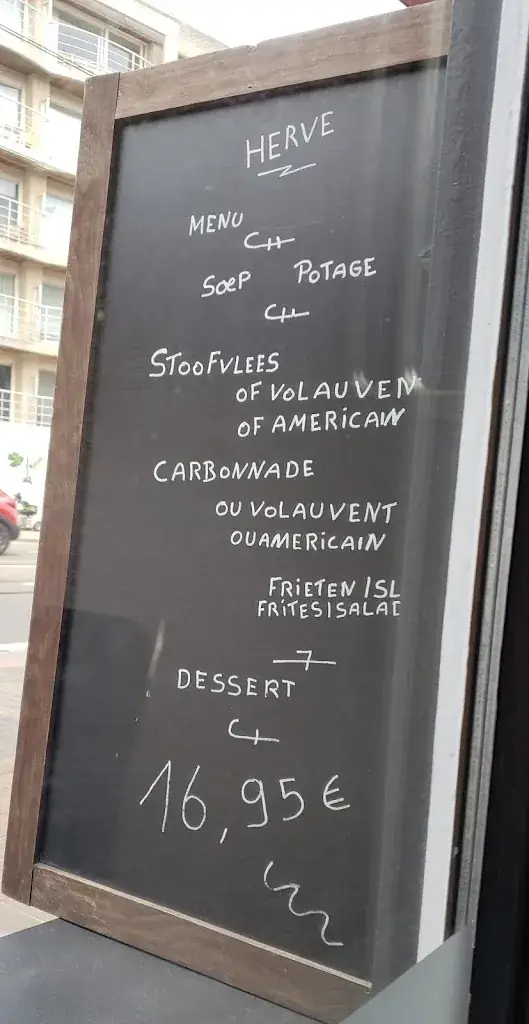 HERVE
MENU
SOEP POTAGE
STOOFVLEES
OF VOLAUVEN
OF AMERICAIN
CARBONNADE
OU VOLAUVENT
OUAMERICAIN
FRIETEN/SL
FRITES/SALAD
DESSERT
16,95€